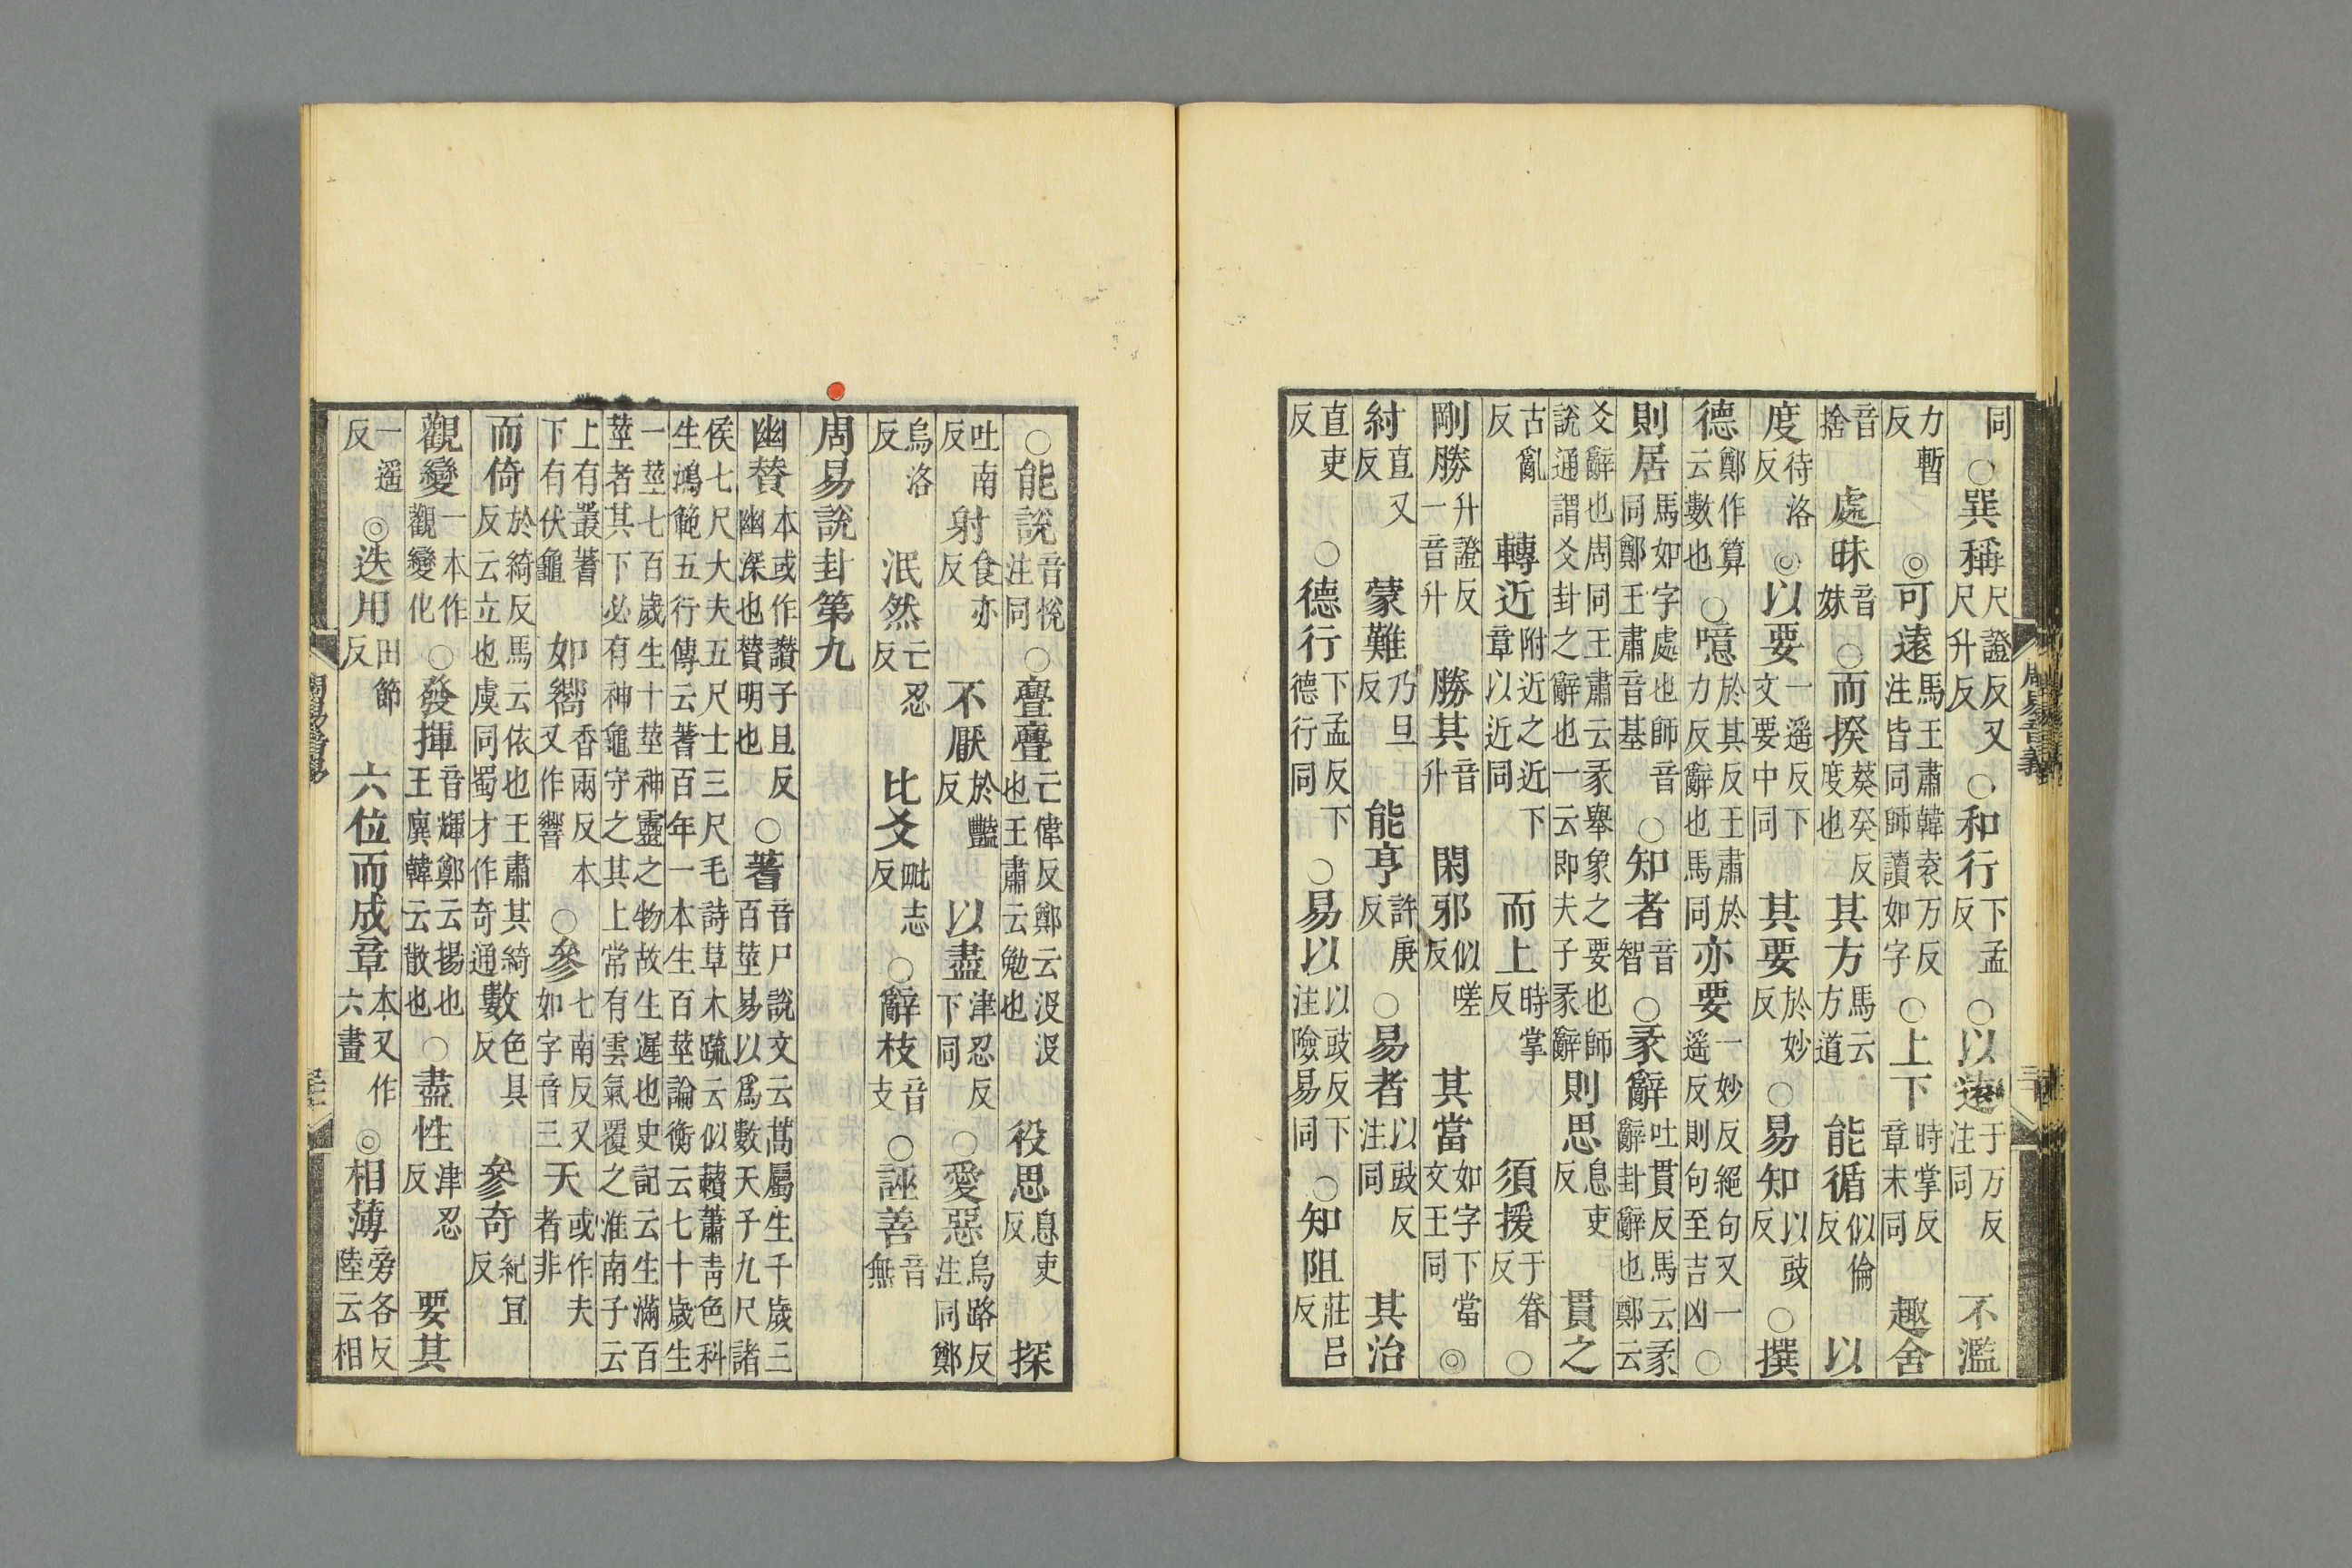 同○巽稱尺證反又尺升反○和行下孟反○以遠于万反注同不濫
力暫反◎可遠馬王肅韓袁万反注皆同師讀如字○上下時掌反章末同趣舍
音捨處昧音妹○而揆葵癸反度也其方馬云方道能循似倫反以
度待洛反◎以要一遥反下文要中同其要於妙反○易知以豉反○撰
德鄭作算云數也○噫於其反王肅於力反辭也馬同亦要一妙反絕句又一遥反則句至吉凶○
則居馬如字處也師音同鄭王肅音基○知者音智○彖辭吐貫反馬云彖辭卦辭也鄭云
爻辭也周同王肅云彖舉象之要也師說通謂爻卦之辭也一云即夫子彖辭則思息吏反貫之
古亂反轉近附近之近下章以近同而上時掌反須援于眷反○
剛勝升證反一音升勝其音升閑邪似嗟反其當如字下當文王同◎
紂直又反蒙難乃旦反能亨許庚反○易者以豉反注同其治
直吏反○德行下孟反下德行同○易以以豉反下注險易同○知阻莊呂反
周易音義
○能說音悅注同○亹亹亡偉反鄭云沒沒也王肅云勉也役思息吏反探
吐南反射食亦反不厭於豔反以盡津忍反下同○愛惡烏路反注同鄭
烏洛反泯然亡忍反比爻毗志反○辭枝音支○誣善音無
周易說卦第九
幽賛本或作讚子旦反幽深也賛明也○蓍音尸說文云蒿屬生千歲三百莖易以爲數天子九尺諸
侯七尺大夫五尺士三尺毛詩草木䟽云似藾蕭青色科生鴻範五行傳云蓍百年一本生百莖論衡云七十歲生
一莖七百歲生十莖神靈之物故生遲也史記云生滿百莖者其下必有神龜守之其上常有雲氣覆之淮南子云
上有叢蓍下有伏龜如嚮香兩反本又作響○參七南反又如字音三天或作夫者非
而倚於綺反馬云依也王肅其綺反云立也虞同蜀才作奇通數色具反參奇紀宜反
觀變一本作觀變化○發揮音輝鄭云揚也王廙韓云散也○盡性津忍反要其
一遥反◎迭用田節反六位而成章本又作六畫◎相薄旁各反陸云相